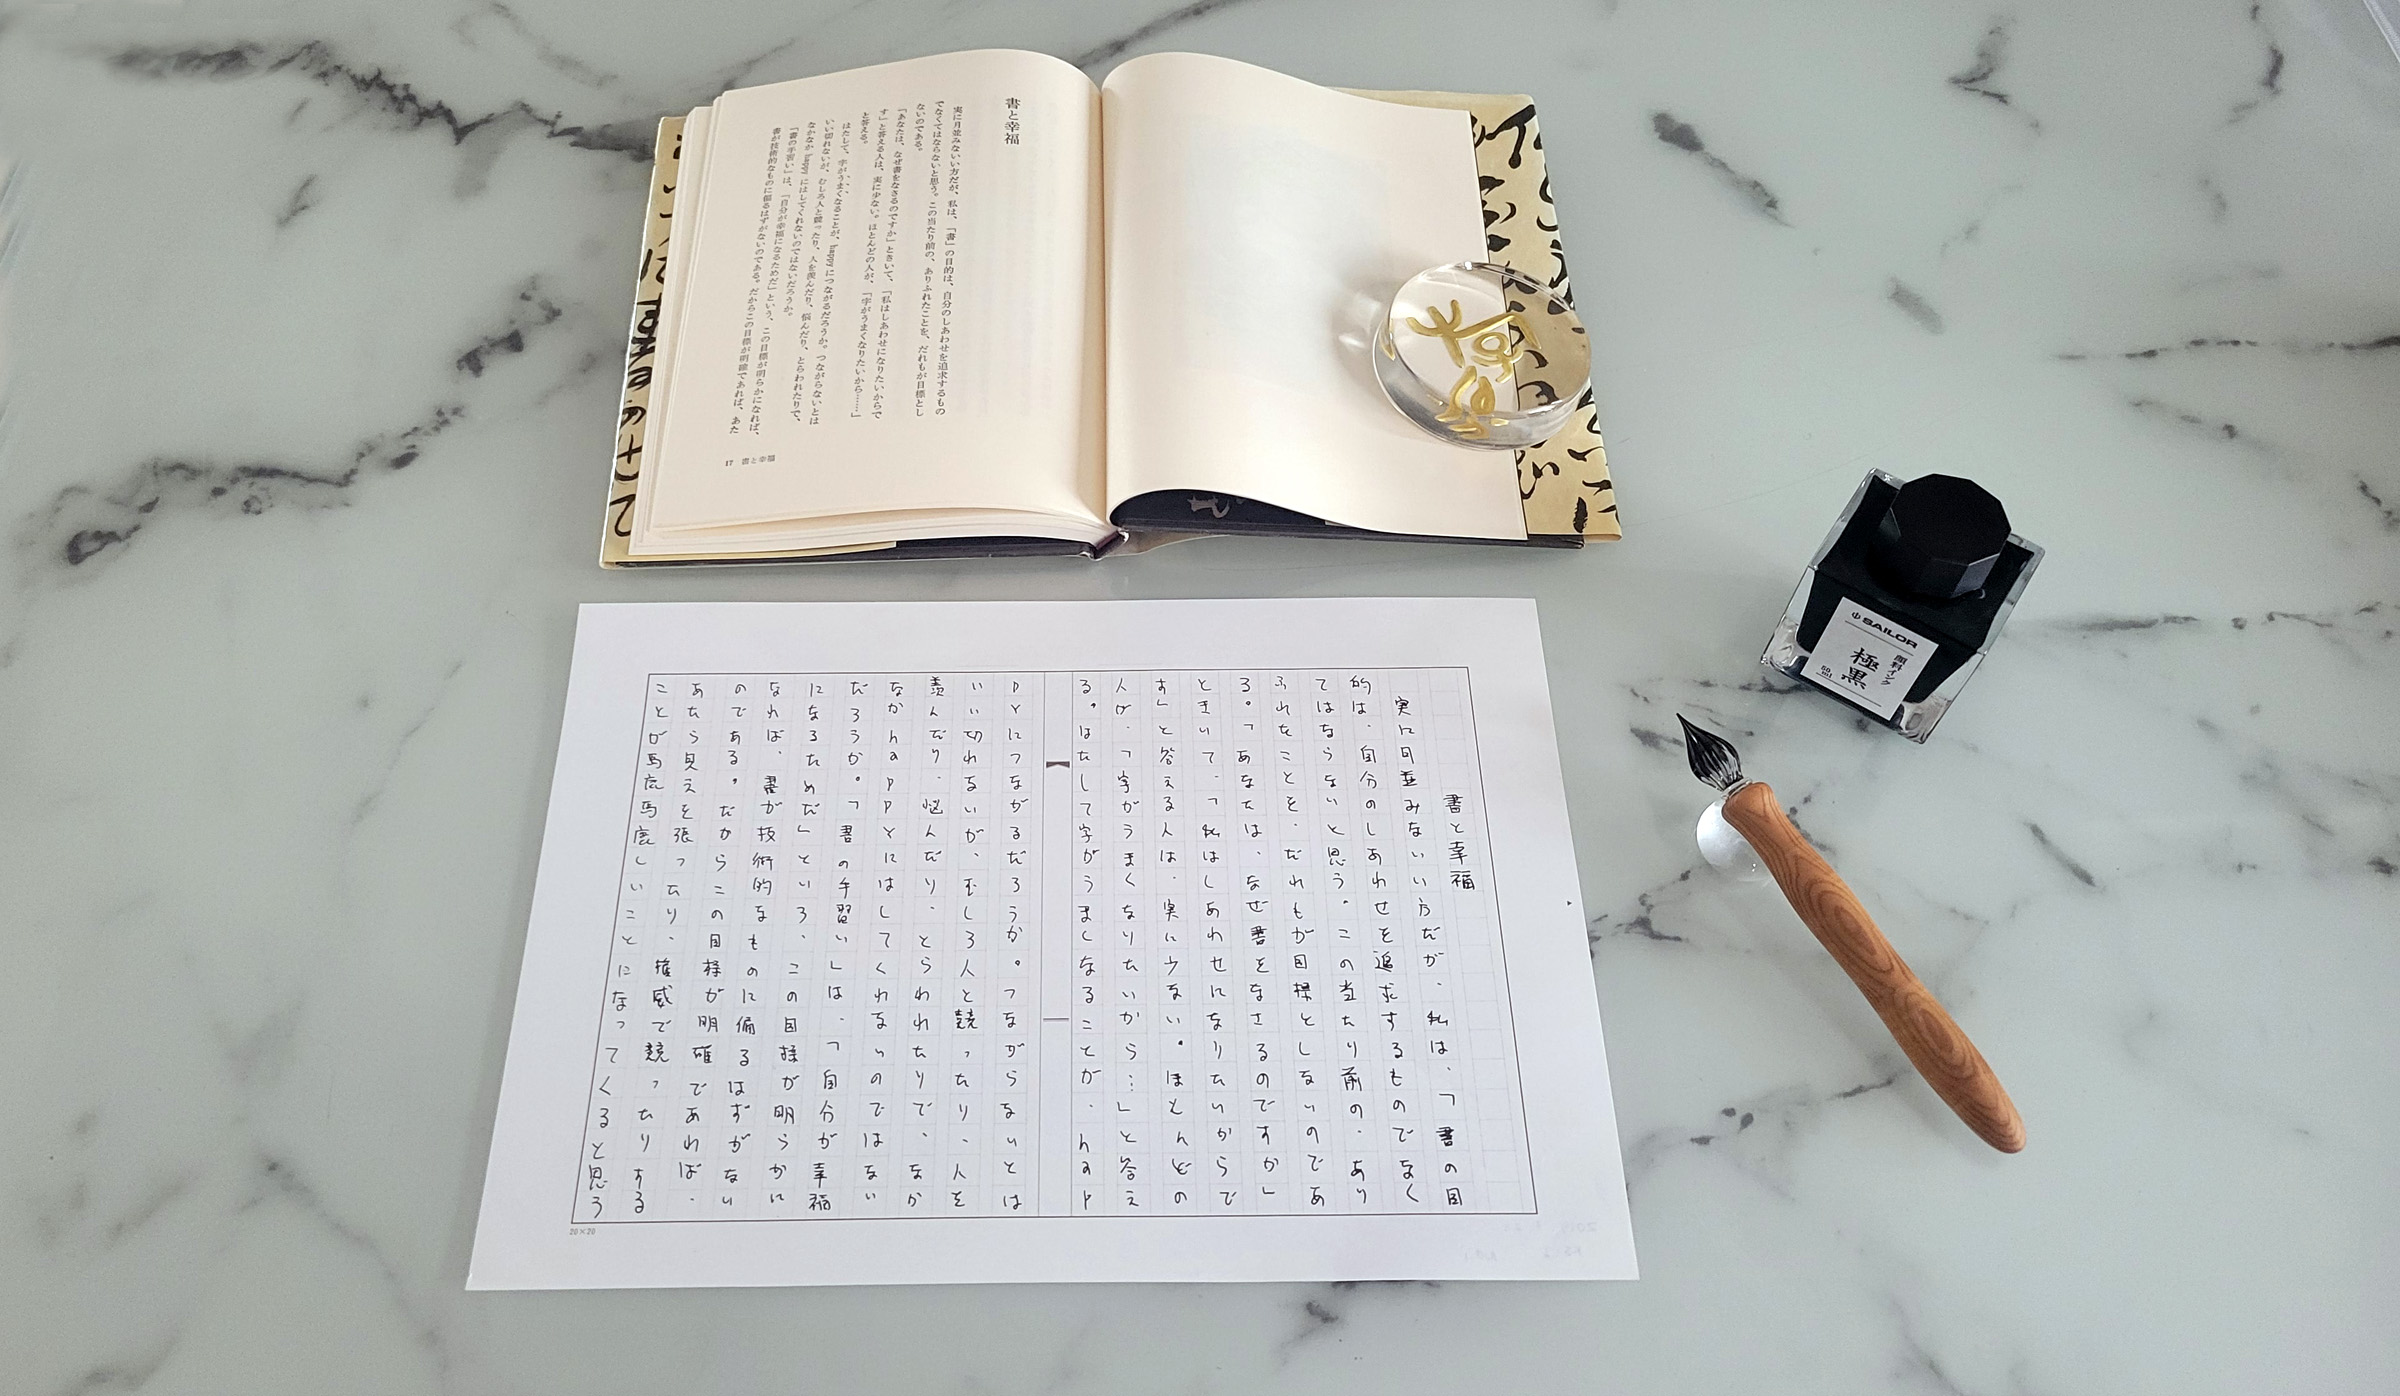 書と幸福
実に月並みないい方だが、私は、「書」の目的は、自分のしあわせを追求するもの
でなくてはならないと思う。この当たり前の、ありふれたことを、だれもが目標とし
ないのである。
「あなたは、なぜ書をなさるのですか」ときいて、「私はしあわせになりたいからで
す」と答える人は、実に少ない。ほとんどの人が、「字がうまくなりたいから……」
と答える。
はたして、字がうまくなることが、happyにつながるだろうか。つながらないとは
いい切れないが、むしろ人と競ったり、人を羨んだり、悩んだり、とらわれたりで、
なかなかhappyにはしてくれないのではないだろうか。
「書の手習い」は、「自分が幸福になるためだ」という、この目標が明らかになれば、
書が技術的なものに偏るはずがないのである。だからこの目標が明確であれば、あた
17 書と幸福
SAILOR
顔料インク
極黒
50ml
書と幸福
実に月並みないい方だが、私は、「書の目
的は、自分のしあわせを追求するものでなく
てはならないと思う。この当たり前の、あり
ふれたことを、だれもが目標としないのであ
る。「あなたは、なぜ書をなさるのですか」
ときいて、「私はしあわせになりたいからで
す」と答える人は、実に少ない。ほとんどの
人が、「字がうまくなりたいから…」と答え
る。はたして字がうまくなることが、hap
pyにつながるだろうか。つながらないとは
いい切れないが、むしろ人と競ったり、人を
羨んだり、悩んだり、とらわれたりで、なか
なかhappyにはしてくれないのではない
だろうか。「書の手習い」は、「自分が幸福
になるためだ」という、この目標が明らかに
なれば、書が技術的なものに偏るはずがない
のである。だからこの目標が明確であれば、
あたら見えを張ったり、権威で競ったりする
ことが馬鹿馬鹿しいことになってくると思う
20×20